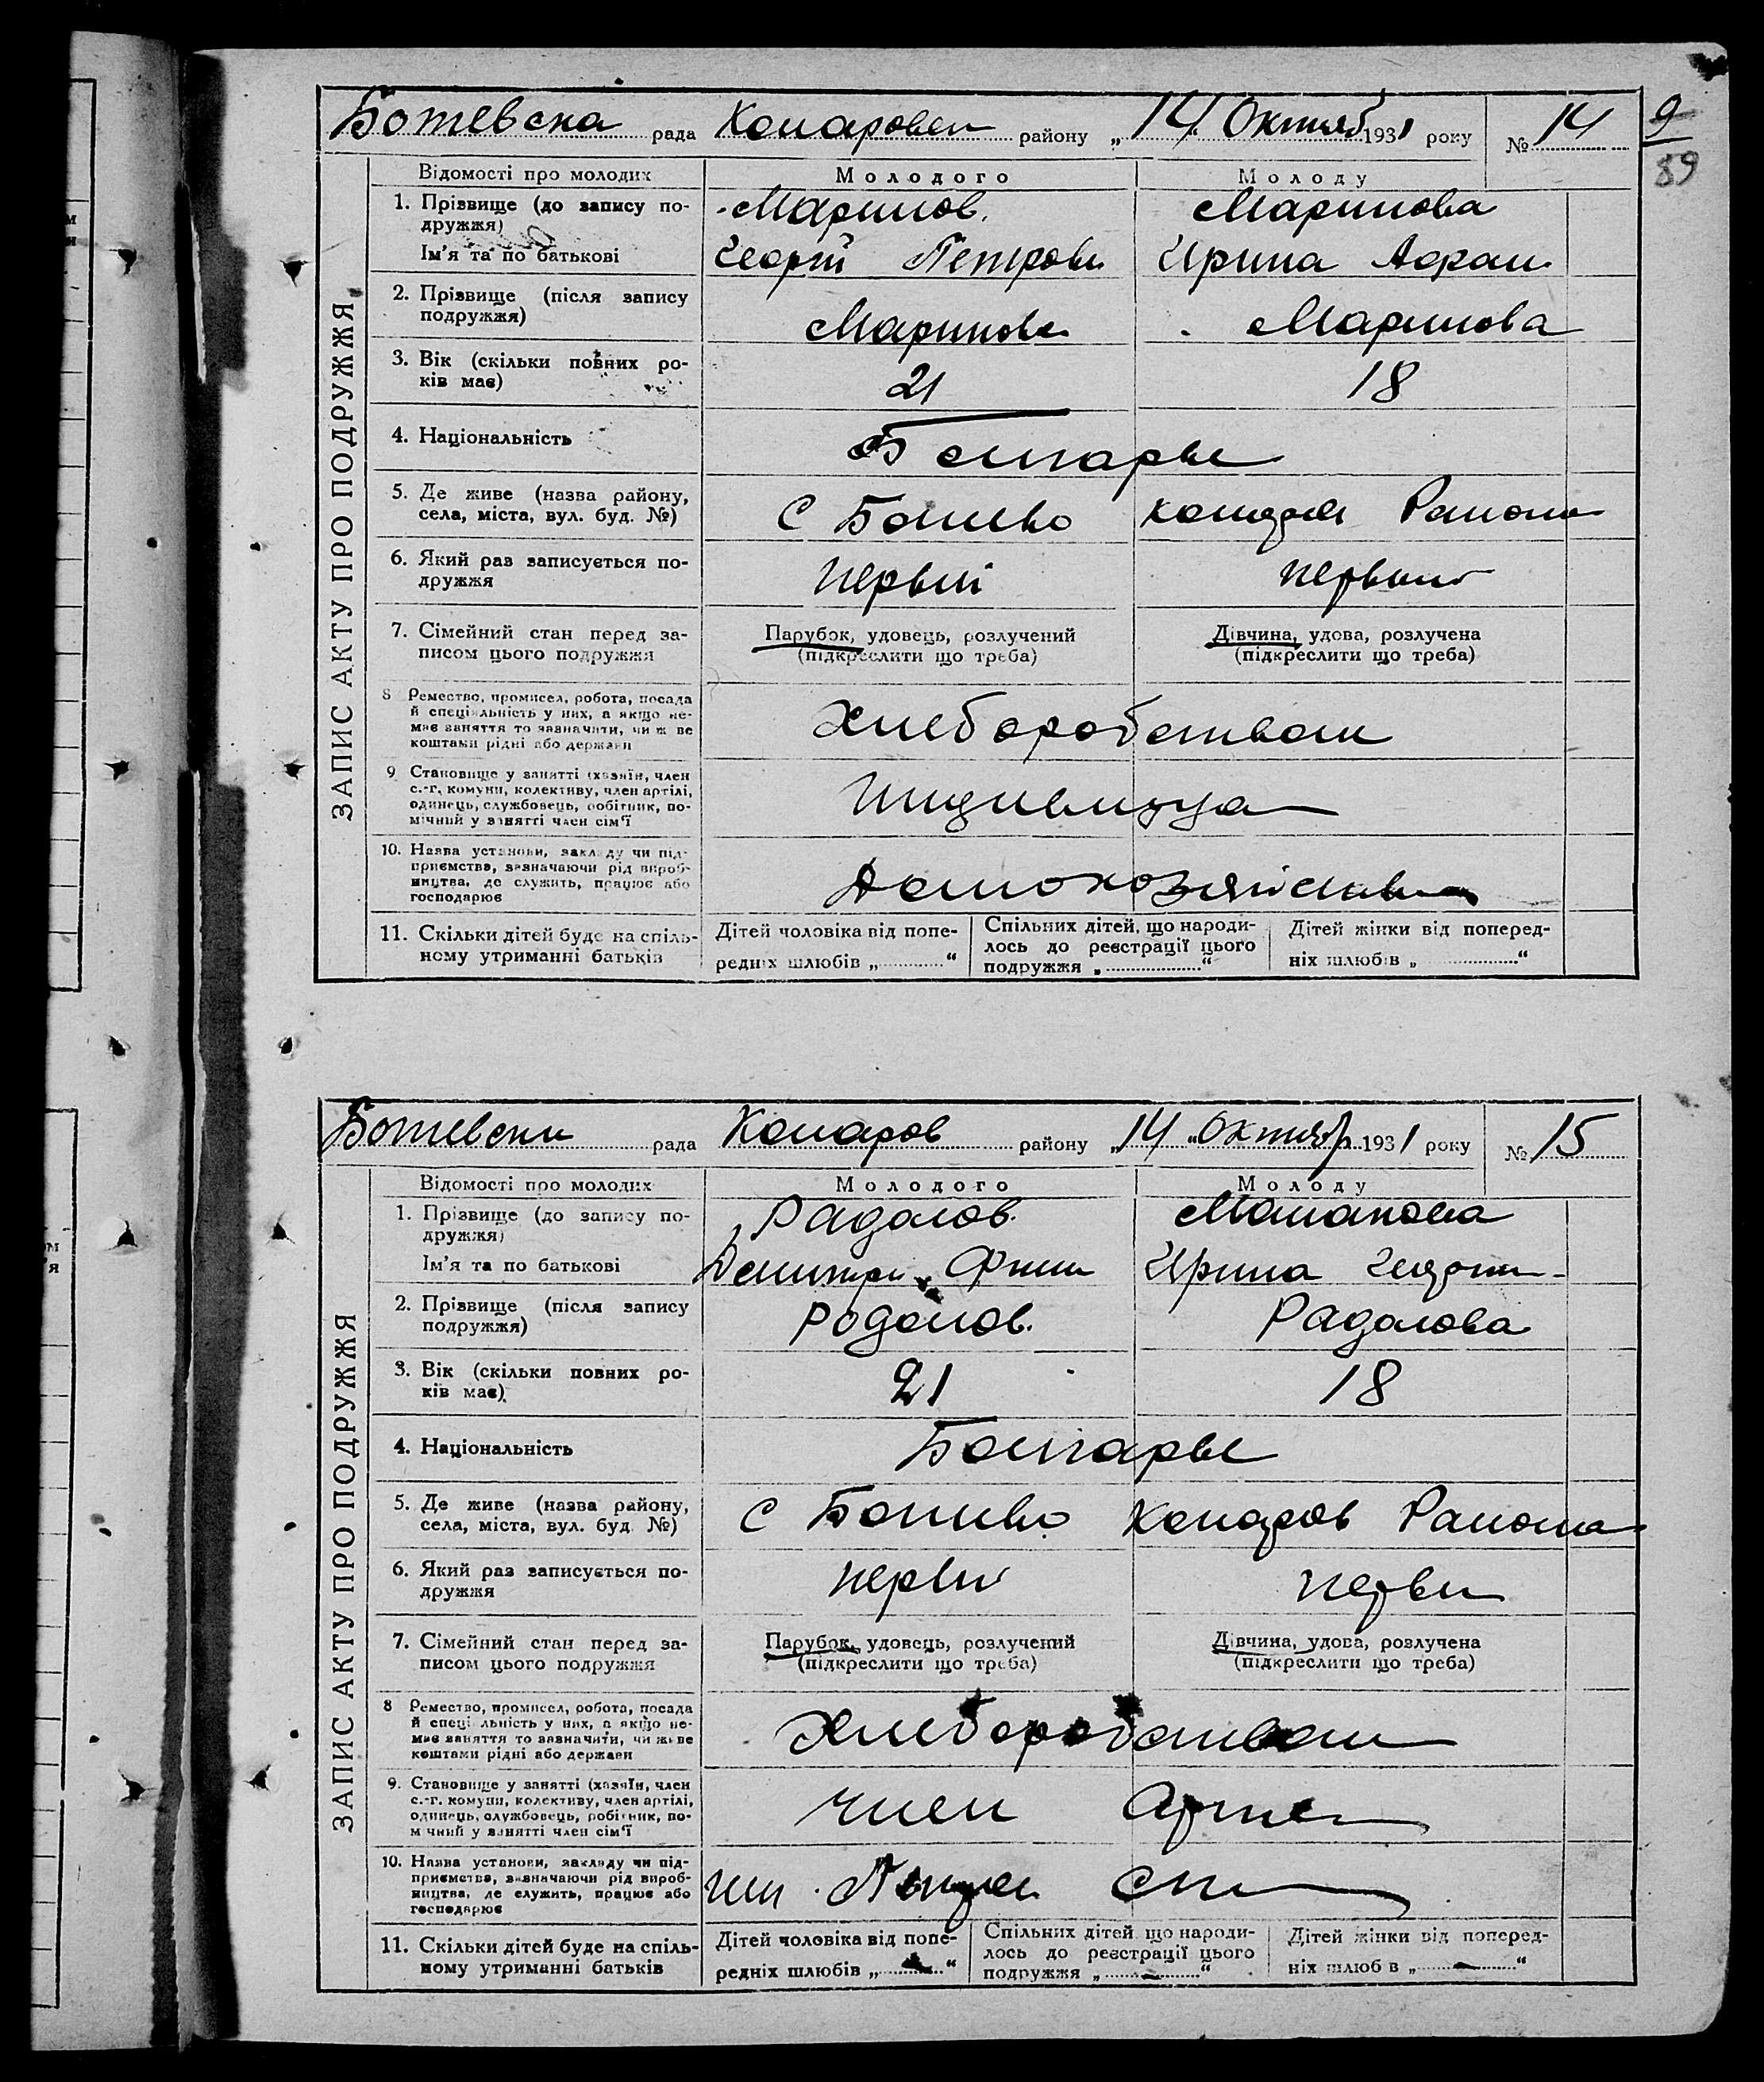 Ботевска рада Комаровск району „14„ Октяб 1931 року № 14
9
89
ЗАПИС АКТУ ПРО ПОДРУЖЖЯ
Відомості про молодих Молодого Молоду
1. Прізвище (до запису по-
дружжя)
Маринов. Маринова
Ім'я та по батькові Георгій Петрови Ирина
2. Прізвище (після запису
подружжя)
Маринов Маринова
3. Вік (скільки повних ро-
ків має)
21 18
4. Національність Болгары
5. Де живе (назва району,
села, міста, вул. буд. №)
с Ботево Района
6. Який раз записується по-
дружжя
Первий первый
7. Сімейний стан перед за-
писом цього подружжя
Парубок, удовець, розлучений Дівчина, удова, розлучена
(підкреслити що треба) (підкреслити що треба)
8 Ремество, промисел, робота, посада
й спеціяльність у них, а якщо не-
має заняття то зазначити, чи живе
коштами рідні або держави
Хлеборобством
9 Становище у занятті (хазяїн, член
с.-г. комуни, колективу, член артілі,
одинець, службовець, робітник, по-
мічний у занятті член сім'ї
10. Назва установи, закладу чи під-
приємства, зазначаючи рід вироб-
ництва, де служить, працює або
господарює
11. Скільки дітей буде на спіль-
ному утриманні батьків
Дітей чоловіка від попе-
редніх шлюбів „..........“
Спільних дітей, що народи-
лось до реєстрації цього
подружжя „..........“
Дітей жінки від поперед-
ніх шлюбів „..........“
Ботевски рада Комаров району „14„ Октябр 1931 року № 15
ЗАПИС АКТУ ПРО ПОДРУЖЖЯ
Відомості про молодих Молодого Молоду
1. Прізвище (до запису по-
дружжя)
Радолов.
Ім'я та по батькові Ирина
2. Прізвище (після запису
подружжя)
Родолов. Радолова
3. Вік (скільки повних ро-
ків має)
21 18
4. Національність Болгары
5. Де живе (назва району,
села, міста, вул. буд. №)
с Ботево Комаров Района
6. Який раз записується по-
дружжя
перви перви
7. Сімейний стан перед за-
писом цього подружжя
Парубок, удовець, розлучений Дівчина, удова, розлучена
(підкреслити що треба) (підкреслити що треба)
8 Ремество, промисел, робота, посада
й спеціяльність у них, а якщо не-
має заняття то зазначити, чи живе
коштами рідні або держави
Хлеборобством
9. Становище у занятті (хазяїн, член
с.-г. комуни, колективу, член артілі,
одинець, службовець, робітник, по-
мічний у занятті член сім'ї
член Арте
10. Назва установи, закладу чи під-
приємства, зазначаючи рід вироб-
ництва, де служить, працює або
господарює
11. Скільки дітей буде на спіль-
ному утриманні батьків
Дітей чоловіка від попе-
редніх шлюбів „..........“
Спільних дітей, що народи-
лось до реєстрації цього
подружжя „..........“
Дітей жінки від поперед-
ніх шлюбів „..........“